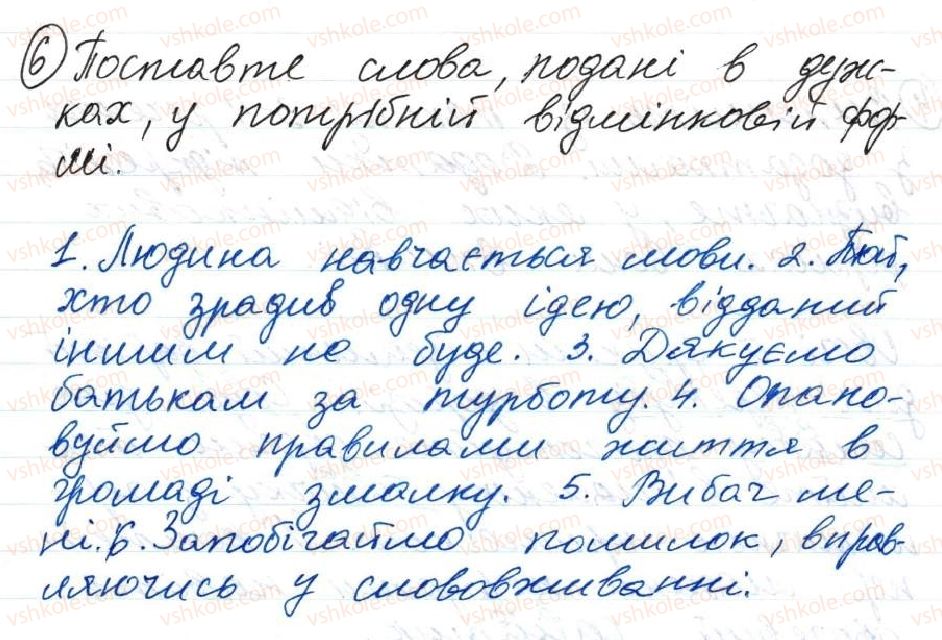 6 Поставте слова, подані в дуж-
ках, у потрібній відмінковій фор-
мі.
1. Людина навчається мови. 2. Той,
хто зрадив одну ідею, відданий
іншим не буде. 3. Дякуємо
батькам за турботу. 4. Опано-
вуймо правилами життя в
громаді змалку. 5. Вибач ме-
ні. 6. Запобігаймо помилок, вправ-
ляючись у слововживанні.